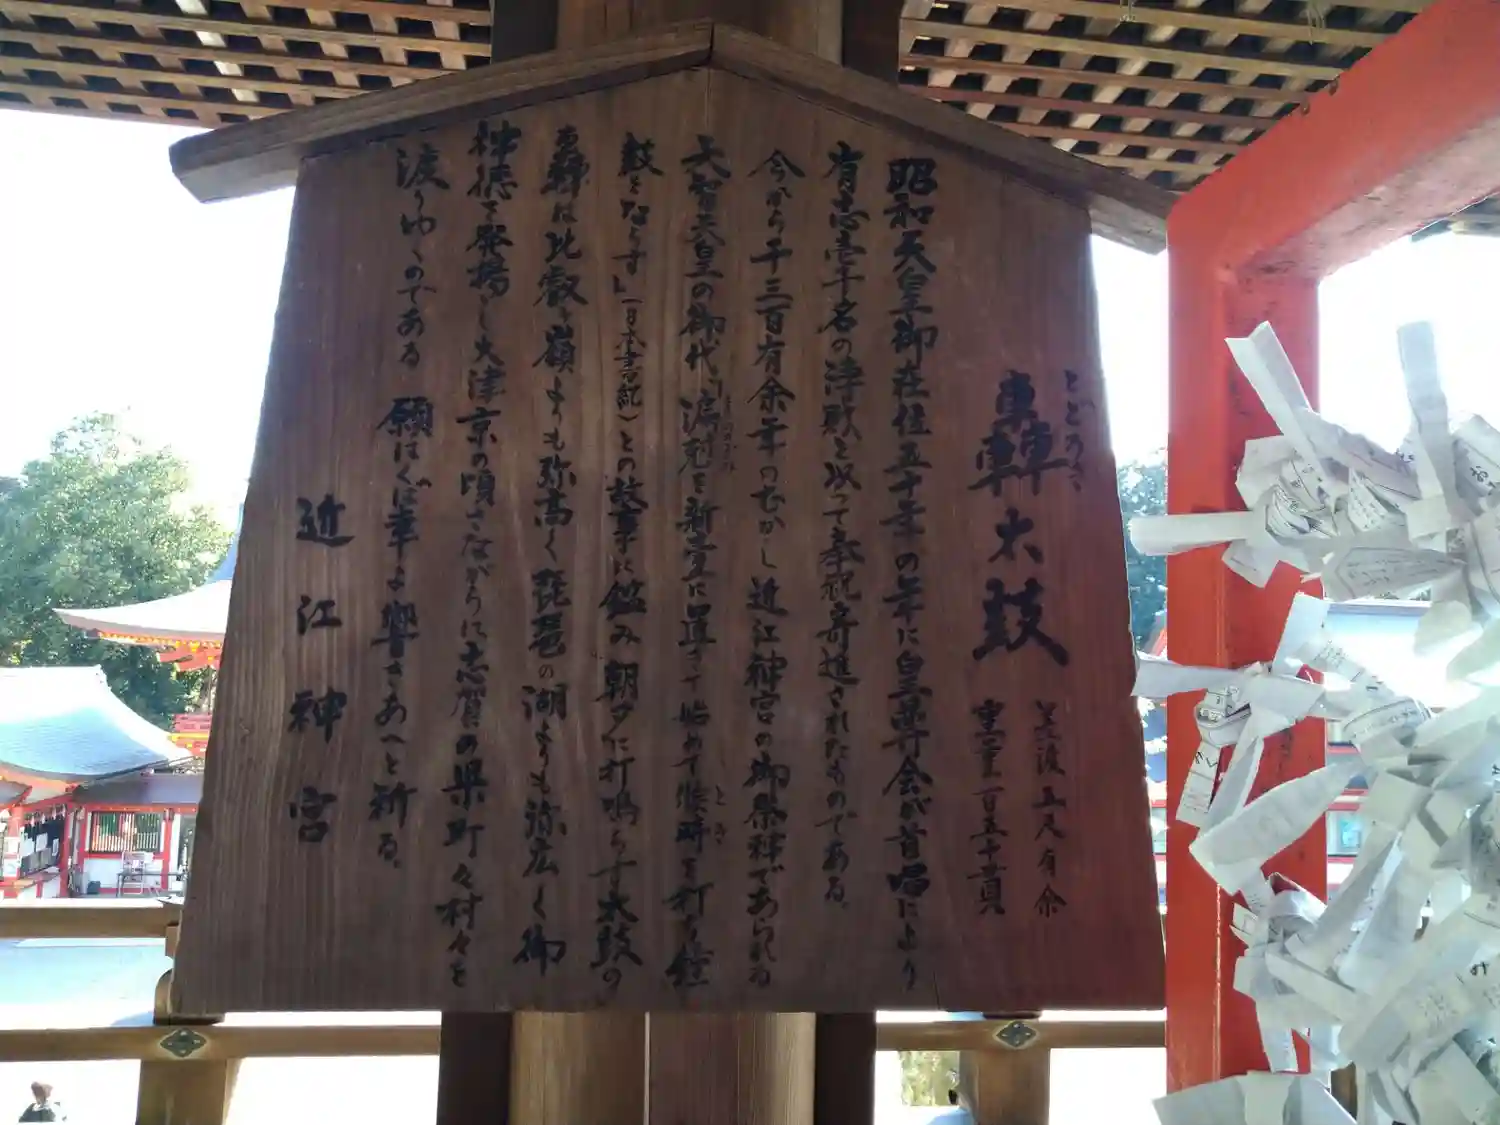 とどろき
轟太鼓
差渡五尺有余
重量百五十貫
昭和天皇御在位五十年の年に皇尊会が首唱により
有志壱千名の浄財を以って奉祝寄進されたものである。
今から千三百有余年のむかし近江神宮の御祭神であられる
天智天皇の御代、「漏剋を新台に置きて始めて候時を打ち鐘
とき
鼓をならす」(日本書紀)との故事に鑑み朝夕に打鳴らす太鼓の
轟は比叡の嶺よりも弥高く琵琶の湖よりも弥広く御
神徳を発揚し大津京の頃さながらに志賀の県町々村々を
渡りゆくのである 願はくば幸よ響きあへと祈る。
近江神宮